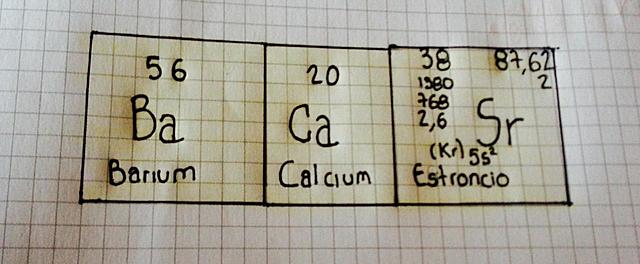 56
Ba
Barium
20
Ca
Calcium
38 87,62
1380 2
768
2,6 Sr
(Kr) 5s²
Estroncio